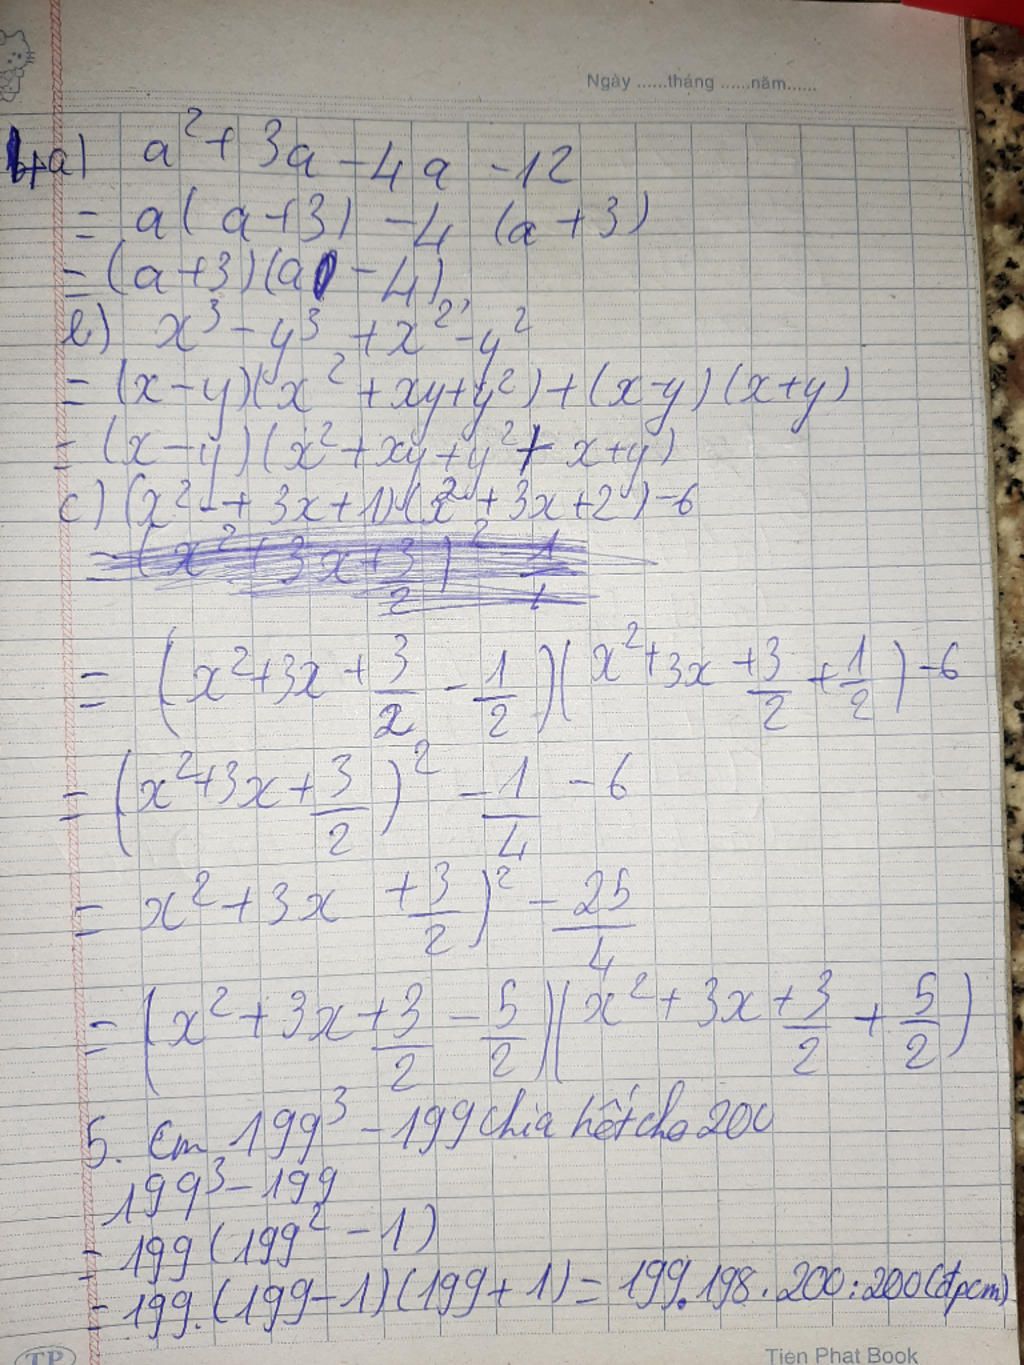 Ngày ......tháng ......năm......
4, a) a² + 3a - 4a - 12
= a( a + 3) - 4 (a + 3)
= (a + 3)(a - 4)
b) x³ - y³ + x² - y²
= (x - y)(x² + xy + y²) + (x - y)(x + y)
= (x - y)(x² + xy + y² + x + y)
c) (x² + 3x + 1)(x² + 3x + 2) - 6
= (x² + 3x + 3/2 - 1/2)(x² + 3x + 3/2 + 1/2) - 6
= (x² + 3x + 3/2)² - 1/4 - 6
= x² + 3x + 3/2)² - 25/4
= (x² + 3x + 3/2 - 5/2)(x² + 3x + 3/2 + 5/2)
5. Cm 199³ - 199 chia hết cho 200
199³ - 199
= 199 (199² - 1)
= 199.(199 - 1)(199 + 1) = 199.198.200:200(đpcm)
TP Tien Phat Book